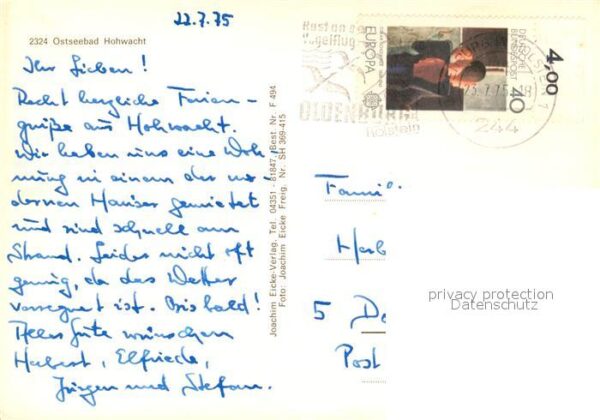 22.7.75
2324 Ostseebad Hohwacht
Ihr Lieben!
Recht herzliche Ferien-
grüße aus Hohwacht.
Wir haben uns eine Woh-
nung in einem der mo-
dernen Häuser gemietet
und sind schnell am
Strand. Leider nicht oft
genug, da das Wetter
verregnet ist. Bis bald!
Alles Gute wünschen
Herbert, Elfriede,
Jürgen und Stefan.
Joachim Eicke-Verlag, Tel. 04351 - 81847, Best. Nr. F 494
Foto: Joachim Eicke Freig. Nr. SH 369-415
Rast an der
Vogelflug
OLDENBURG
Holstein
EUROPA
DEUTSCHE
BUNDESPOST
40
4,00
23.7.75
244
Famil
Herb
5
Post
privacy protection
Datenschutz